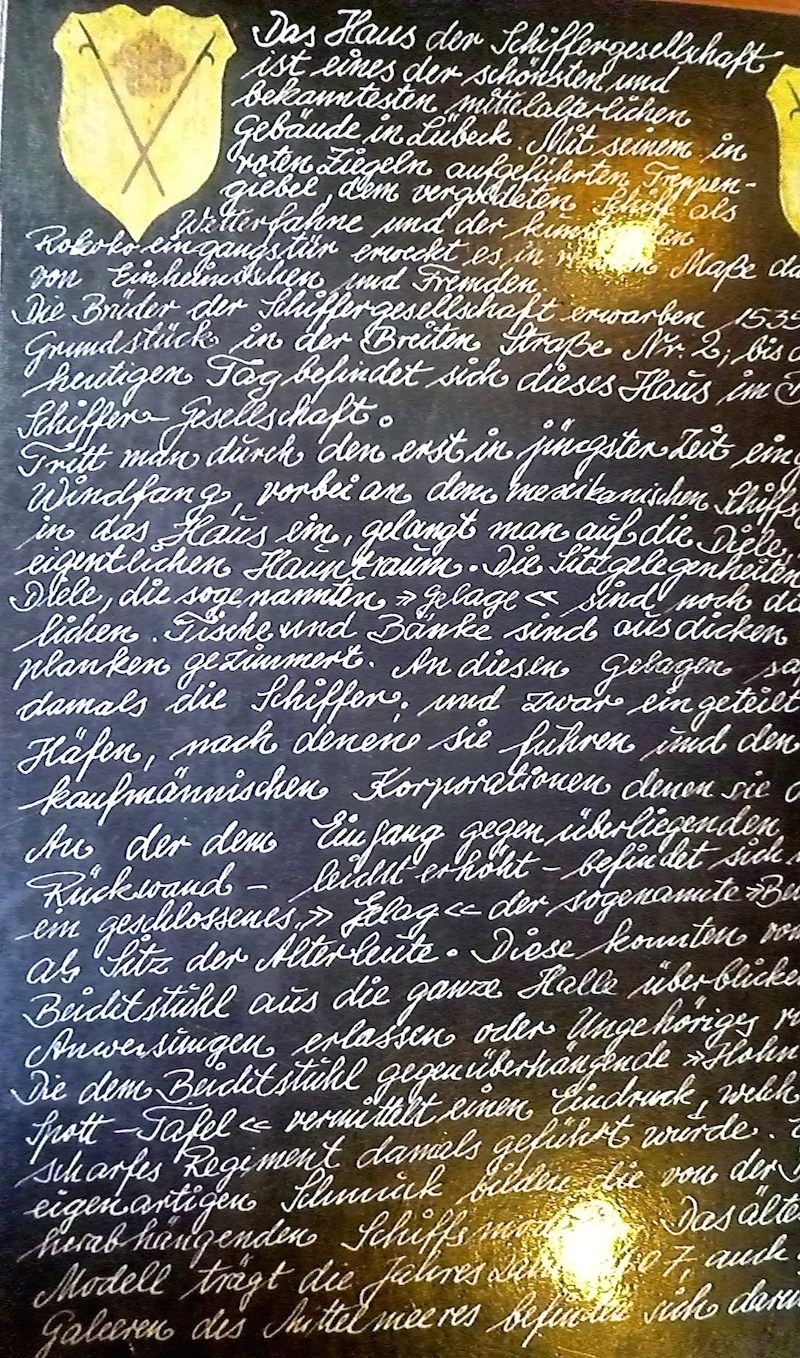 Das Haus der Schiffergesellschaft
ist eines der schönsten und
bekanntesten mittelalterlichen
Gebäude in Lübeck. Mit seinem in
roten Ziegeln aufgeführten Treppen-
giebel, dem vergoldeten Schiff als
Wetterfahne und der
Rokokoeingangstür erweckt es in Maße da
von Einheimischen und Fremden.
Die Brüder der Schiffergesellschaft erwarben 1535
Grundstück in der Breiten Straße Nr. 2; bis
heutigen Tag befindet sich dieses Haus im
Schiffer-Gesellschaft.
Tritt man durch den erst in jüngster Zeit ein
Windfang, vorbei an dem mexikanischen Schiffs
in das Haus ein, gelangt man auf die Diele,
eigentlichen Hauptraum. Die Sitzgelegenheiten
Diele, die sogenannten »Gelage« sind noch
lichen. Tische und Bänke sind aus dicken
planken gezimmert. An diesen Gelagen
damals die Schiffer, und zwar eingeteilt
Häfen, nach denen sie fuhren und den
kaufmännischen Korporationen denen sie
An der dem Eingang gegenüberliegenden
Rückwand - leicht erhöht - befindet sich
ein geschlossenes »Gelag« der sogenannte »Bei
als Sitz der Älterleute. Diese konnten vo
Beichtstuhl aus die ganze Halle überblicke
Anweisungen erlassen oder Ungehöriges
Die dem Beichtstuhl gegenüberhängende »Hohn
Spott-Tafel« vermittelt einen Eindruck, welch
scharfes Regiment damals geführt wurde.
eigenartigen Schmuck bilden die von der
herabhängenden Schiffsmod Das älte
Modell trägt die 07, auch
Galeeren des Mittelmeeres befinden sich daru